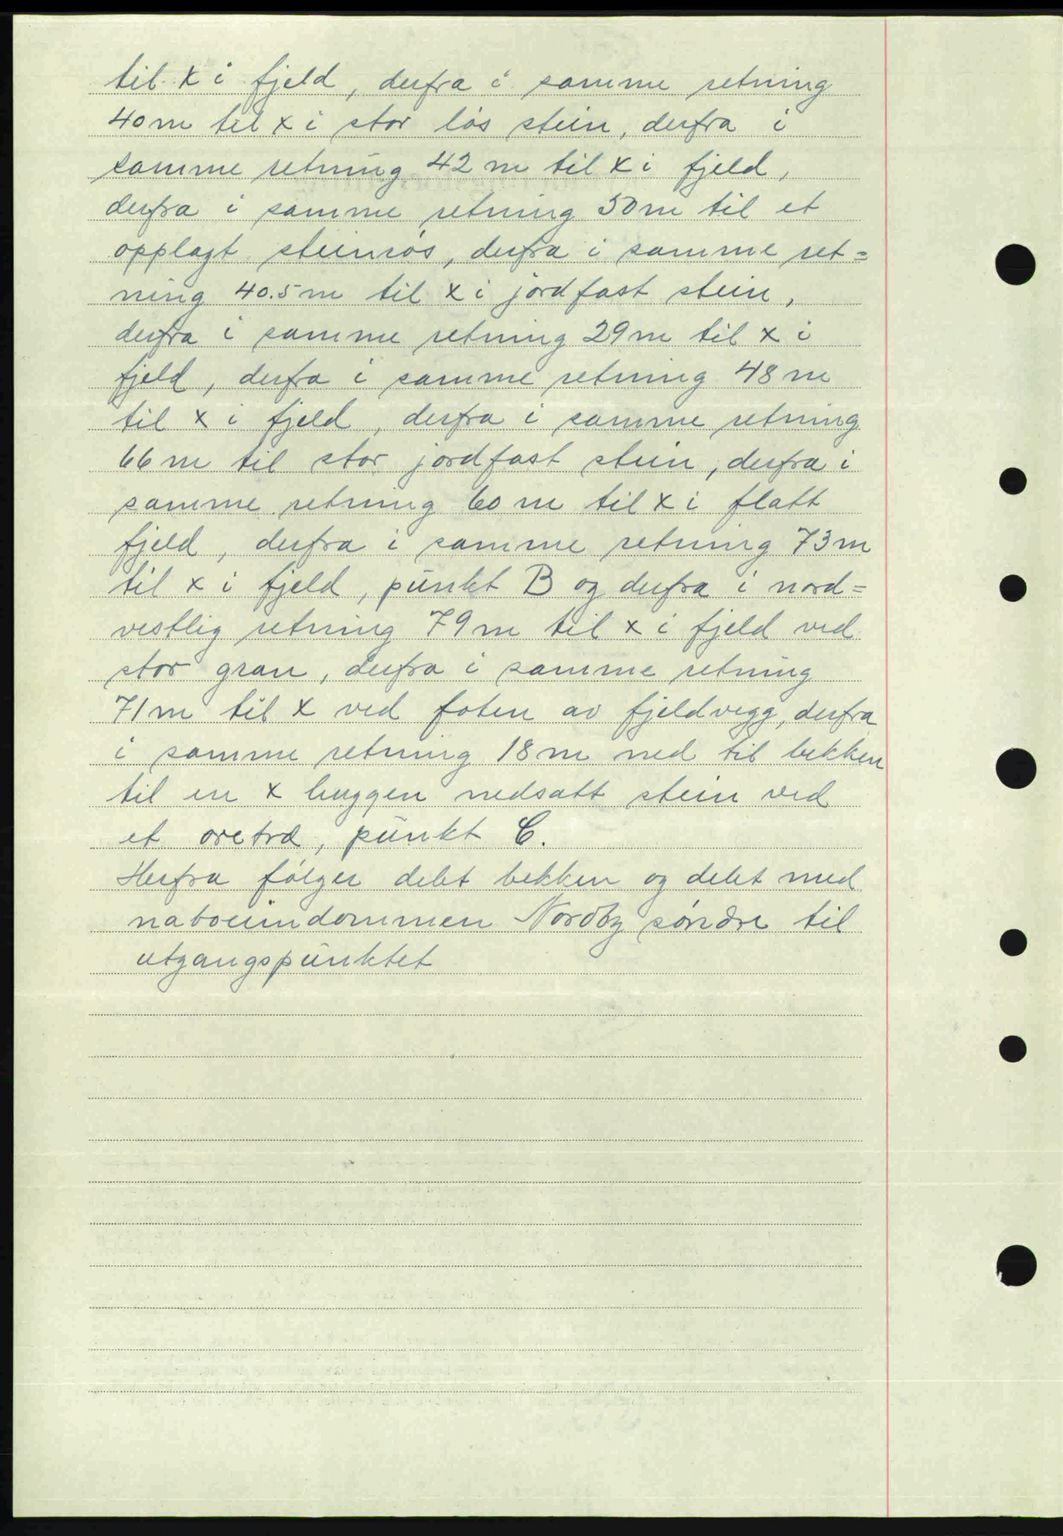 til x i fjeld, derfra i samme retning
40 m til x i stor løs stein, derfra i
samme retning 42 m til x i fjeld,
derfra i samme retning 50 m til et
opplagt steinrøs, derfra i samme ret=
ning 40.5 m til x i jordfast stein,
derfra i samme retning 29 m til x i
fjeld, derfra i samme retning 48 m
til x i fjeld, derfra i samme retning
66 m til stor jordfast stein, derfra i
samme retning 60 m til x i flatt
fjeld, derfra i samme retning 73 m
til x i fjeld, punkt B og derfra i nord=
vestlig retning 79 m til x i fjeld ved
stor gran, derfra i samme retning
71 m til x ved foten av fjeldvegg, derfra
i samme retning 18 m ned til bekken
til en x huggen nedsatt stein ved
et oretræ, punkt C.
Herfra følger delet bekken og delet med
naboeiendommen Nordby søndre til
utgangspunktet